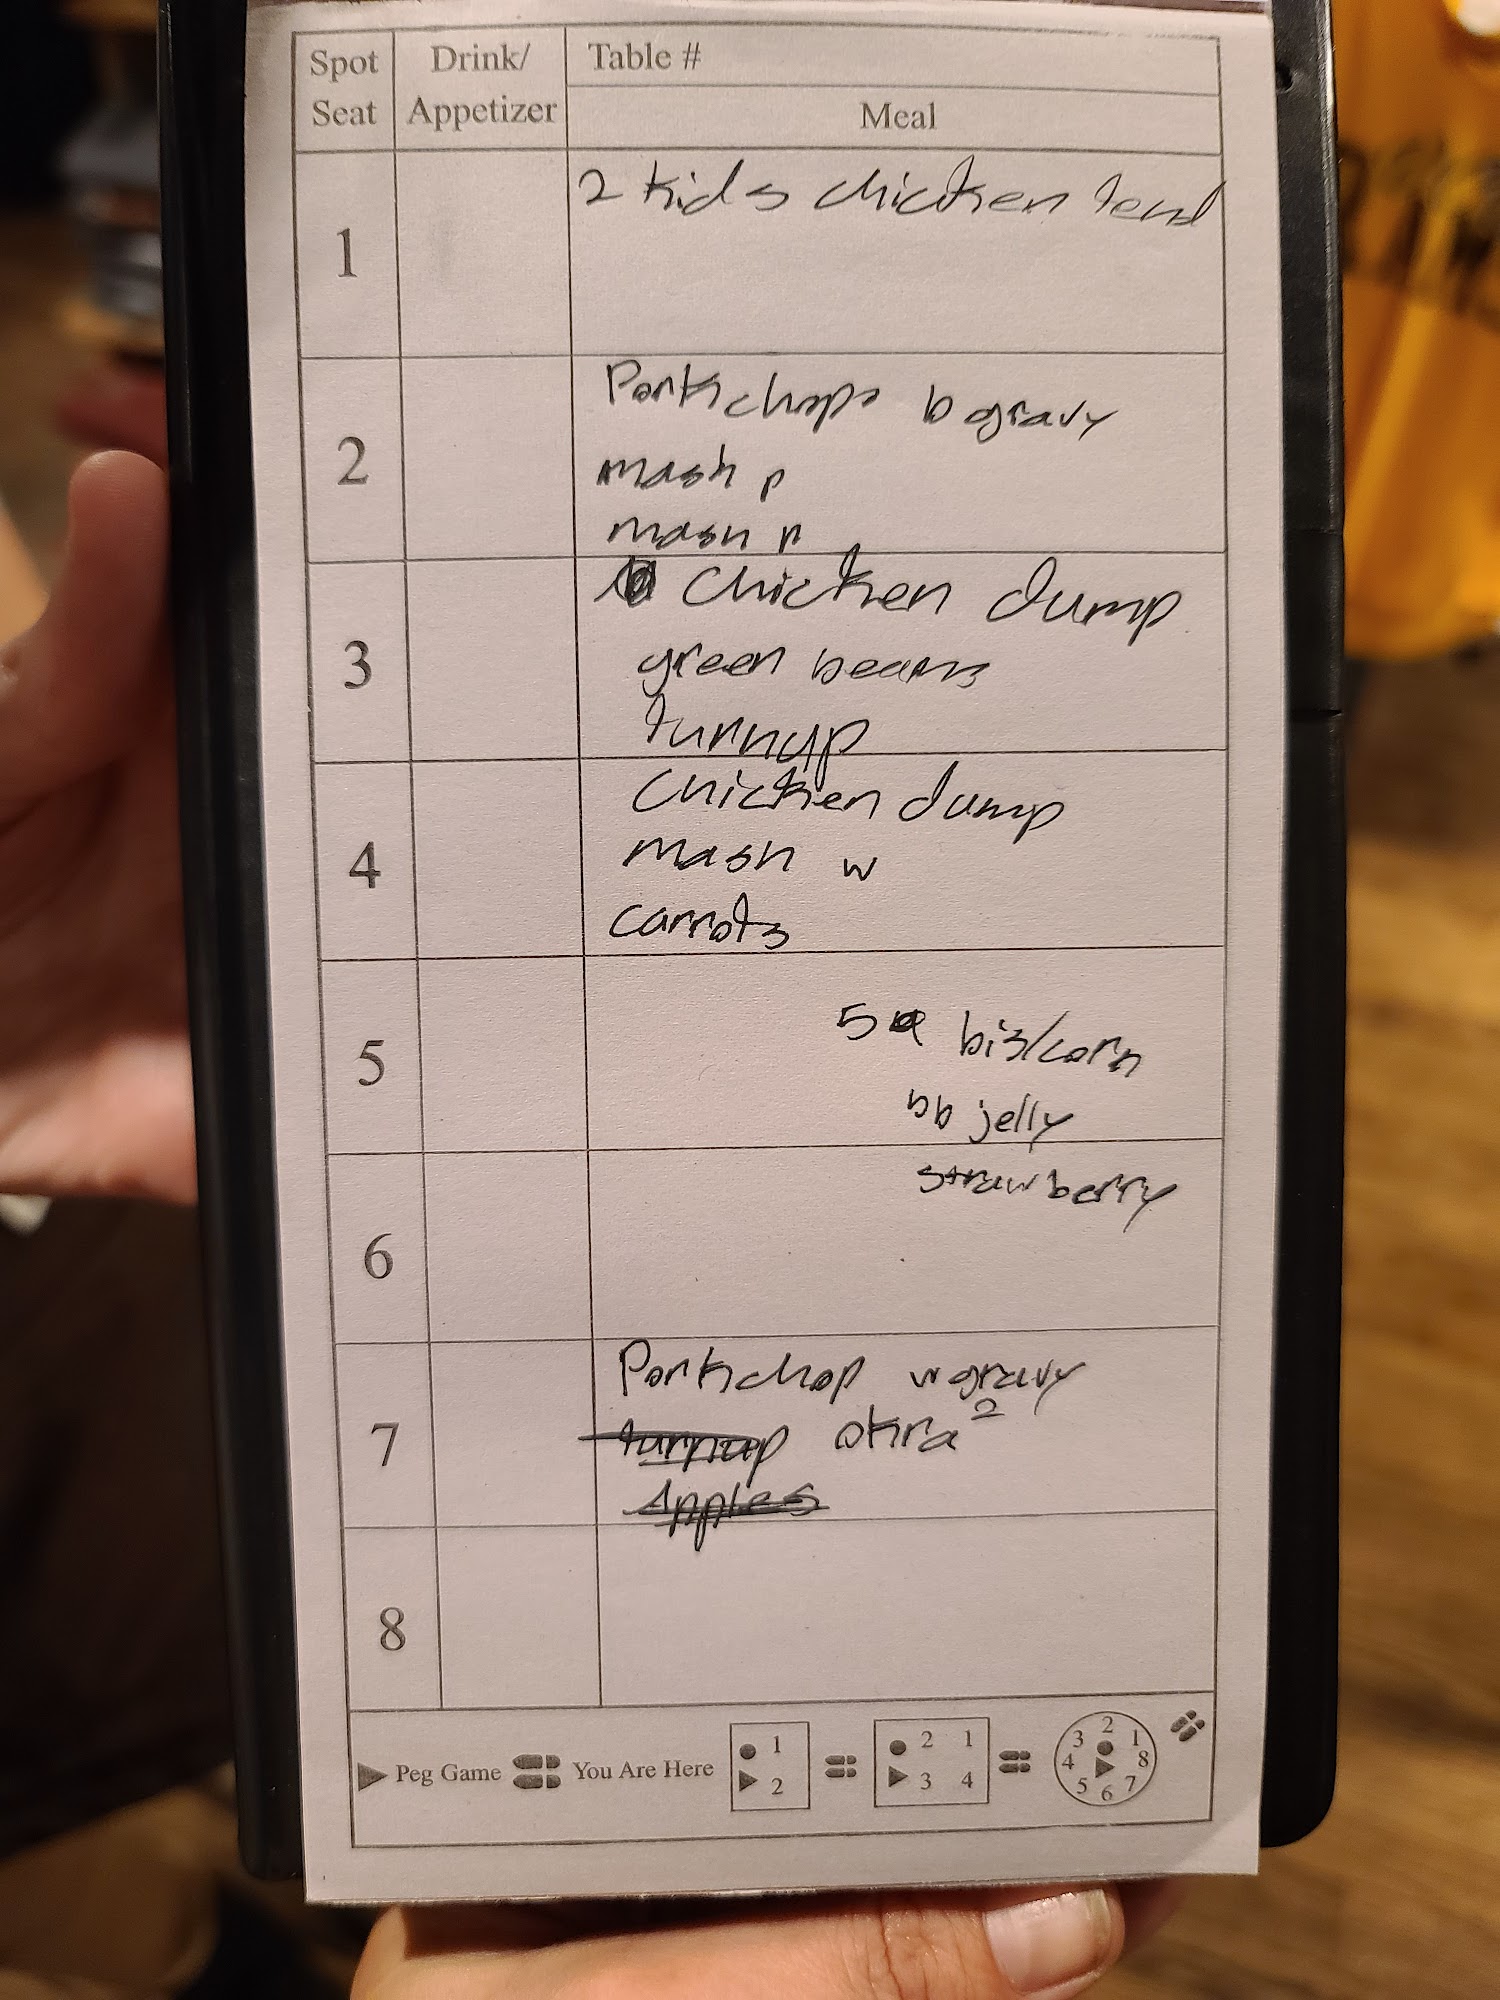 Spot Seat
Drink/ Appetizer
Table #
Meal
1
2 kids chicken tend
2
Porkchops b gravy
mash p
mash p
3
chicken dump
green beans
turnyp
4
chicken dump
mash w
carrots
5
5 bis/corn
bb jelly
strawberry
6
7
Porkchop w gravy
turnup okra 2
Apples
8
Peg Game You Are Here 1 2 = 2 1 3 4 = 3 2 1 4 8 5 6 7